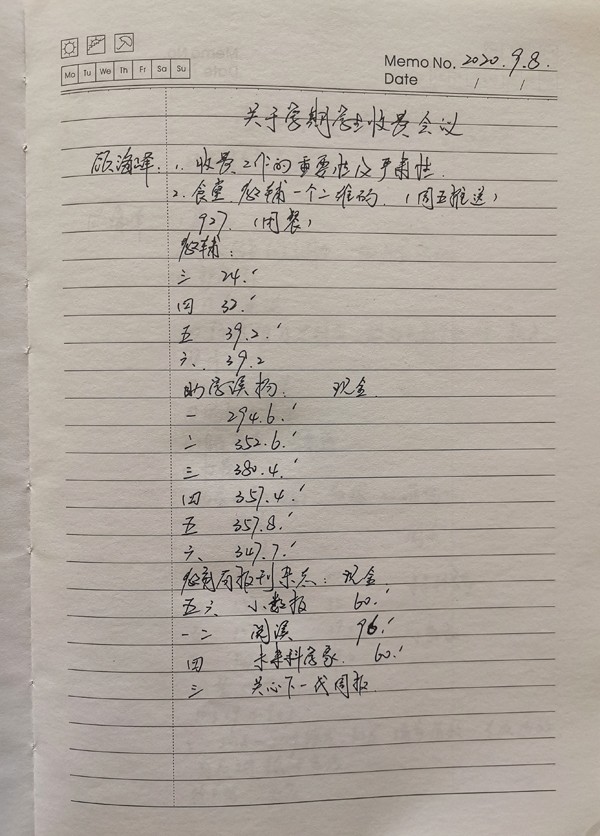 Memo No. 2020.9.8.
Mo Tu We Th Fr Sa Su
Date / /
关于学期学生收费会议
顾海峰: 1. 收费工作的重要性及严肃性.
2. 食堂、教辅一个二维码. (周五推送)
927. (用餐)
教辅:
三 24.′
四 32.′
五 39.2.′
六. 39.2
助学读物. 现金.
一 294.6.′
二 352.6.′
三 380.4.′
四 357.4.′
五 357.8.′
六. 347.7.′
教育局报刊杂志: 现金.
五六 小数报 60.′
一二 阅读 96.′
四 未来科学家. 60.′
三 关心下一代周报.